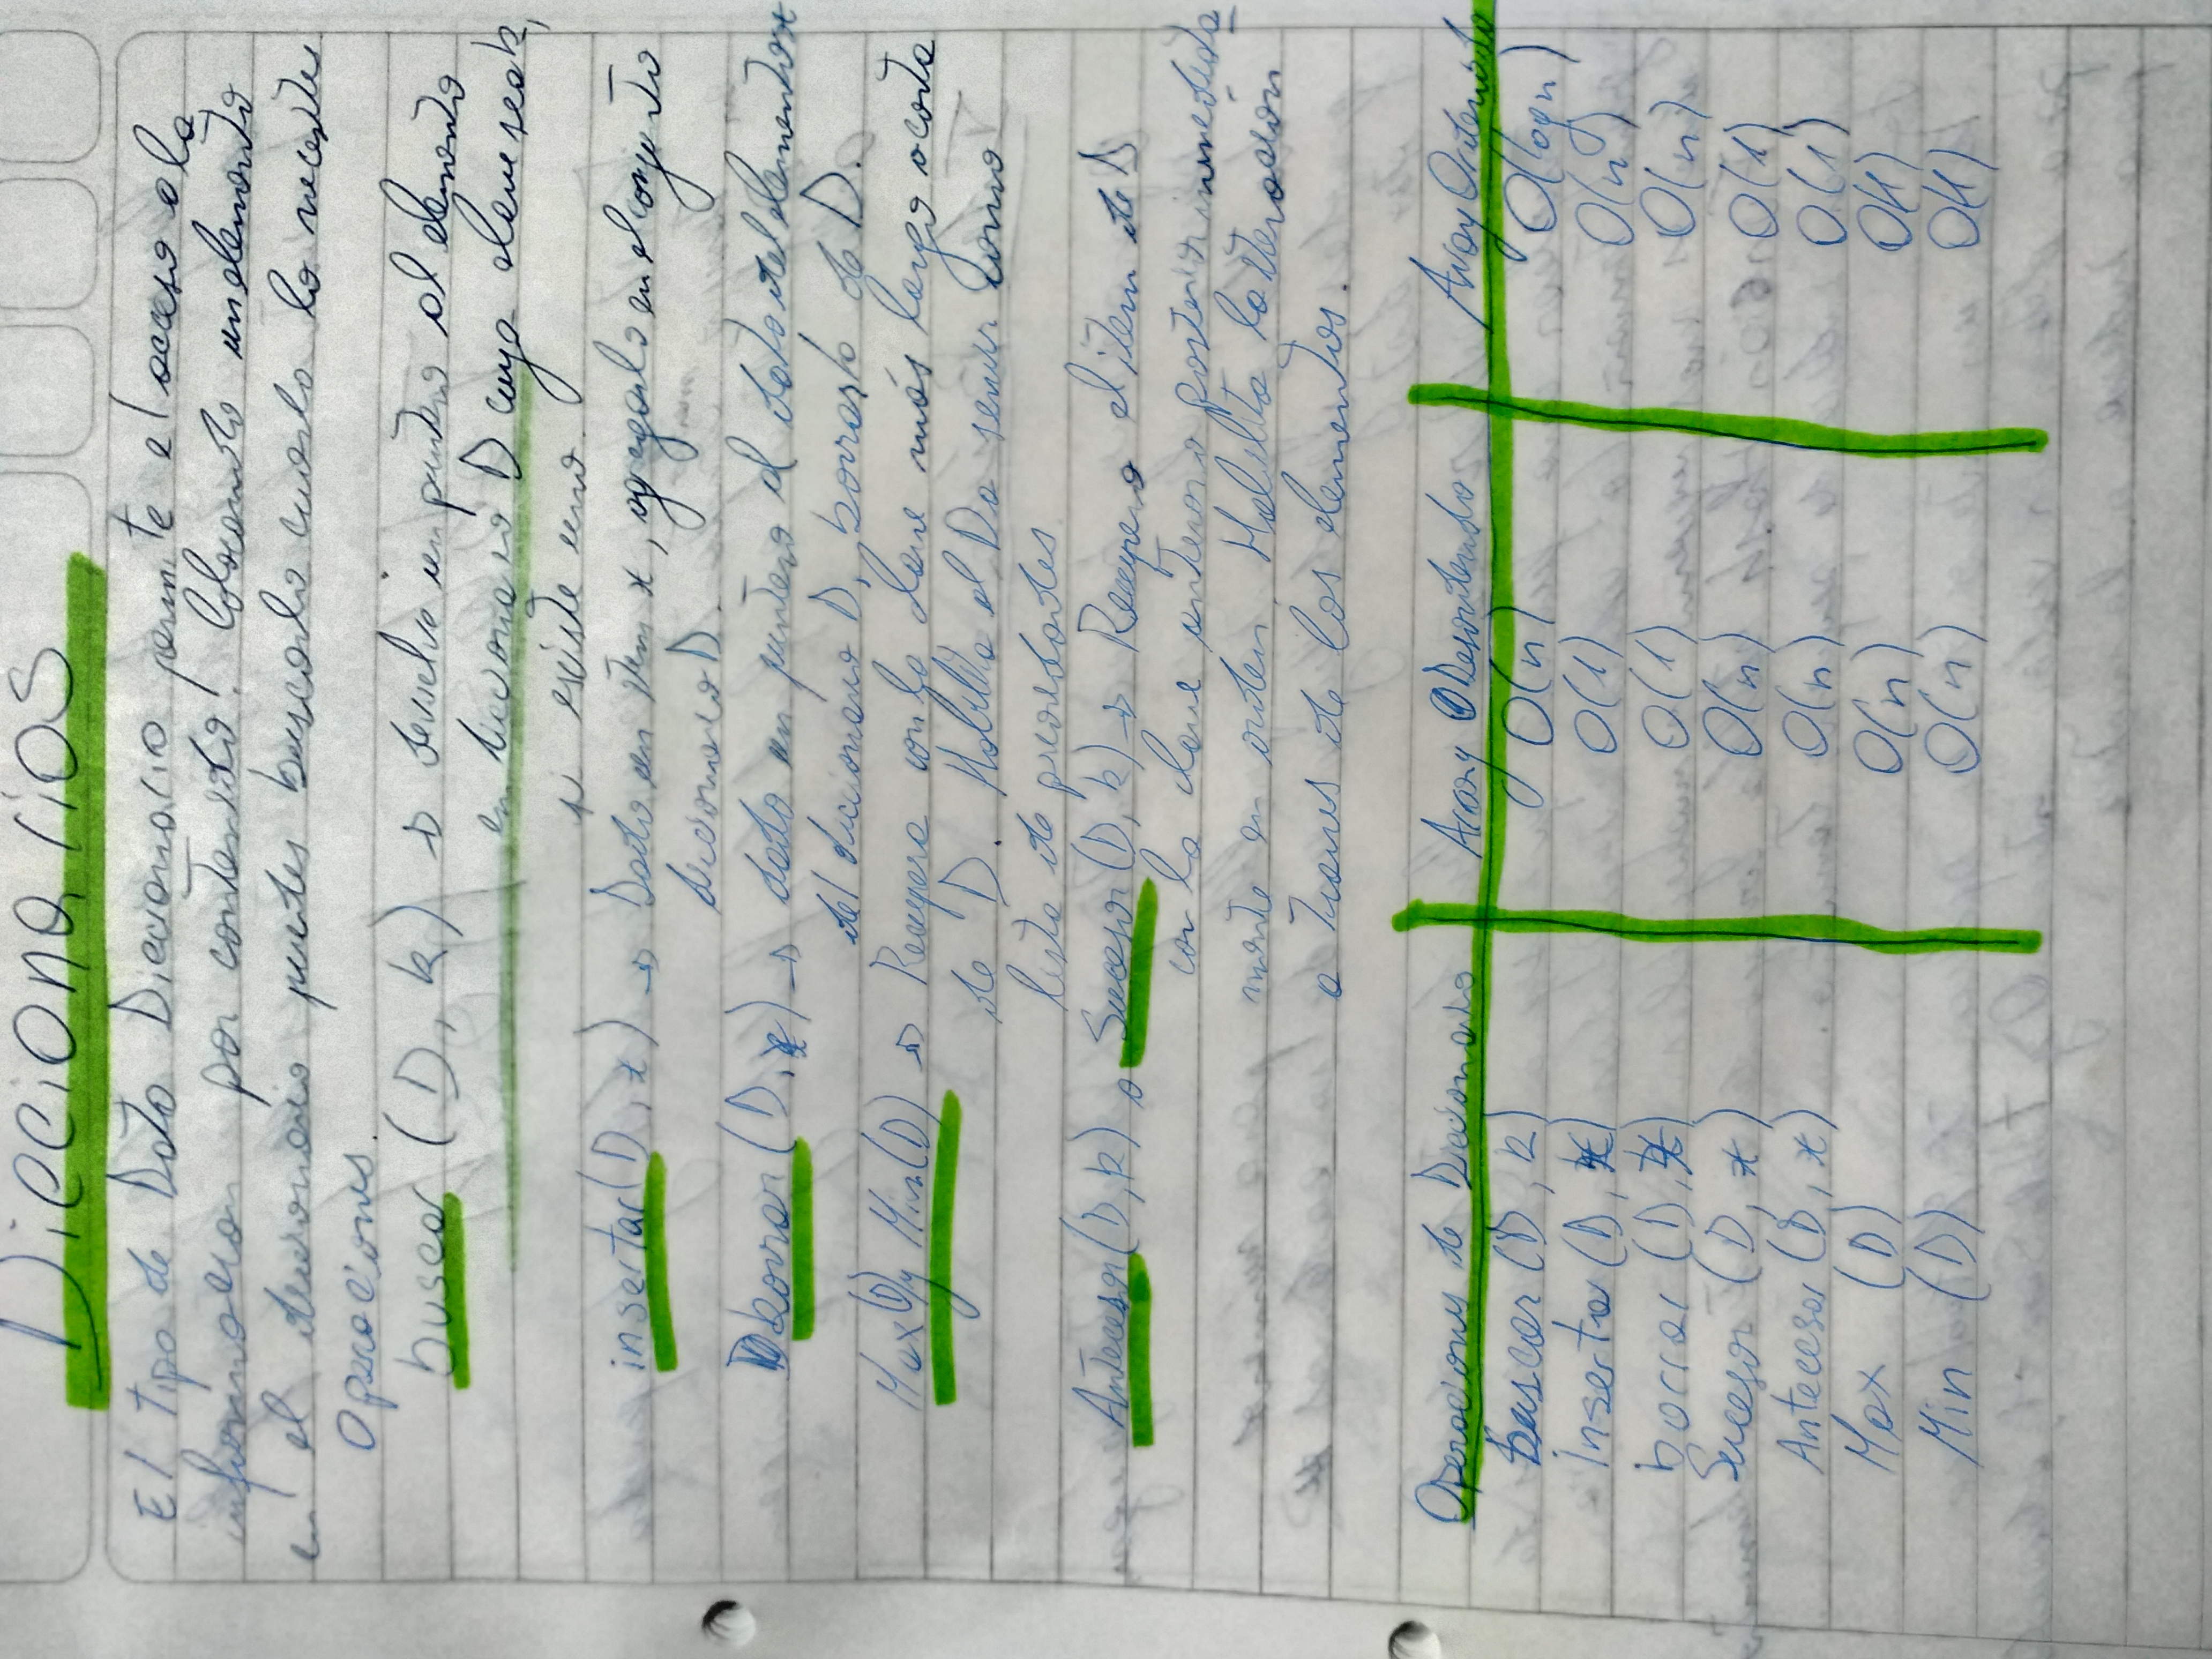 Diccionarios
El tipo de Dato Diccionario permite el acceso a la
información por contenido! Colocando un elemento
en el diccionario puedes buscarlo cuando lo necesites
Operaciones.
buscar (D, k) → devuelve un puntero al elemento
en diccionario D cuya clave sea k,
si existe uno.
insertar (D, x) → Dado un item x, agregarlo en el conjunto
diccionario D.
borrar (D, x) → dado un puntero al dato del elemento x
del diccionario D, borrarlo de D.
Max(D) y Min(D) → Recupera con la clave más larga o corta
de D. Habilita al D a servir como
lista de prioridades
Antecesor (D, k) o Sucesor (D, k) → Recupera el item de D
con la clave anterior o posterior inmediata
mente en orden. Habilita la iteración
a traves de los elementos.
Operaciones de Diccionario Array Desordenado Array Ordenado
buscar (D, k) O(n) O(logn)
Insertar (D, x) O(1) O(n)
borrar (D, x) O(1) O(n)
Sucesor (D, x) O(n) O(1)
Antecesor (D, x) O(n) O(1)
Max (D) O(n) O(1)
Min (D) O(n) O(1)